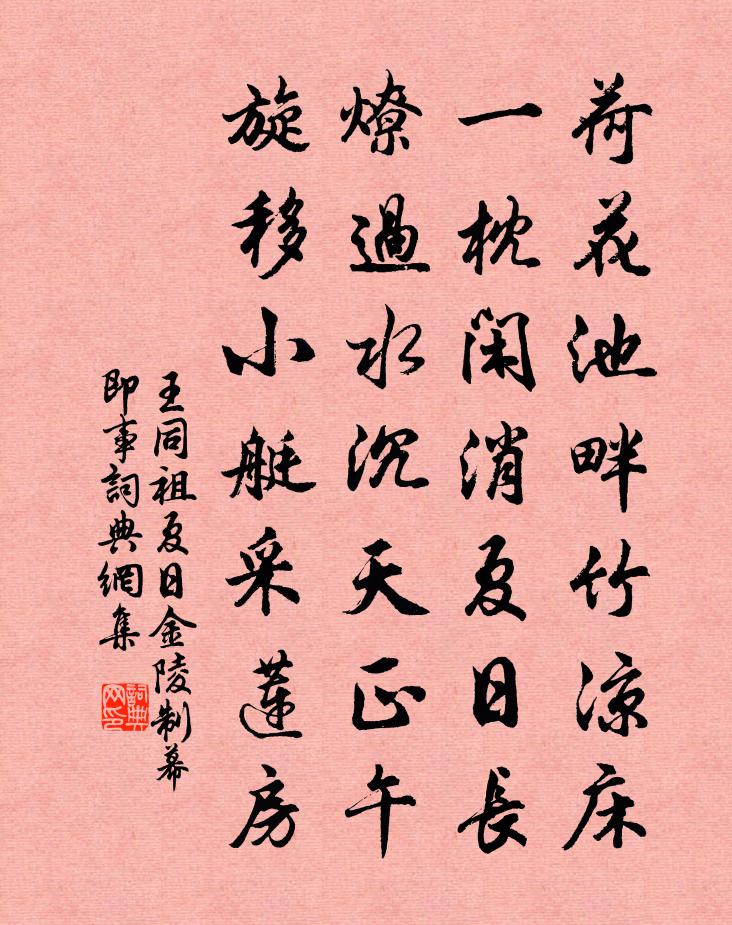 荷花池畔竹凉床
一枕闲消夏日長
燎過水沉天正午
旋移小艇采蓮房
王同祖夏日金陵制幕
即事詞典網集
詞典网印